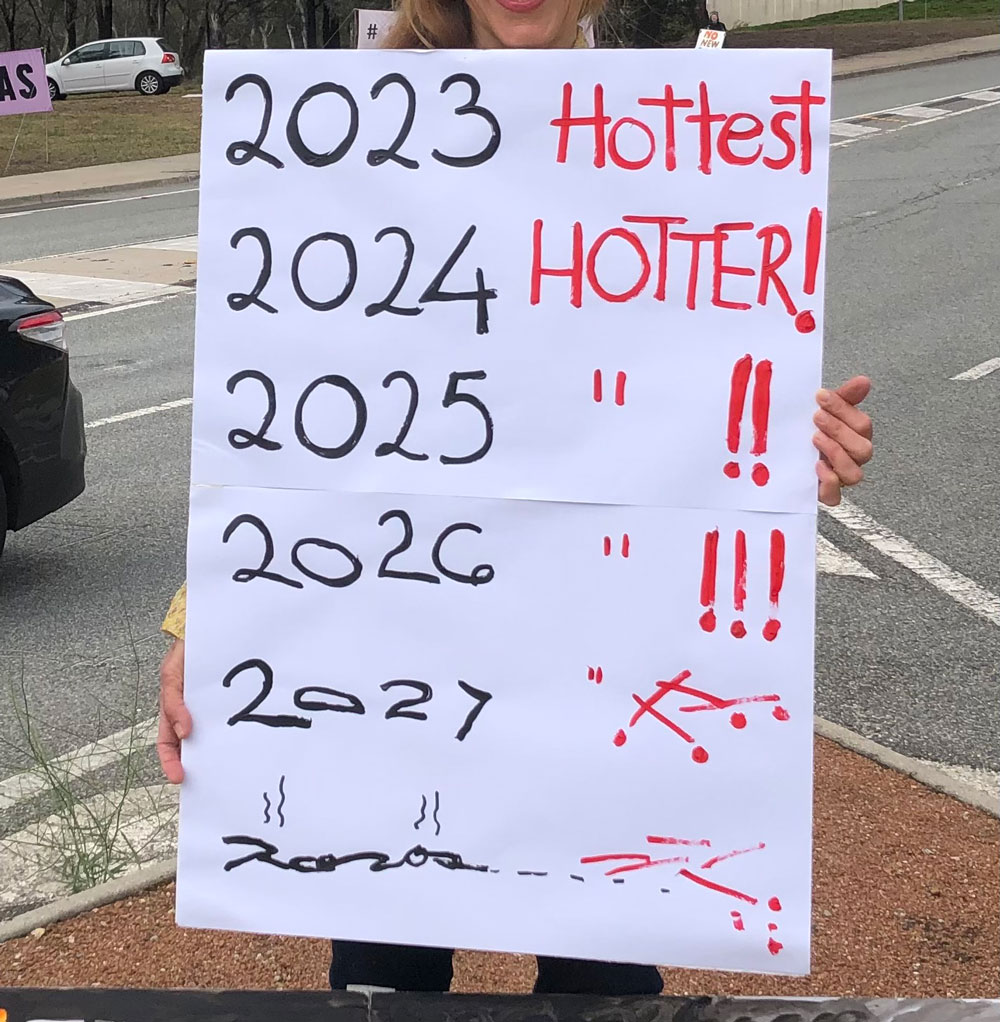 #
NO
NEW
AS
2023 Hottest
2024 HOTTER!
2025 " !!
2026 " !!!
2027 " !!!!